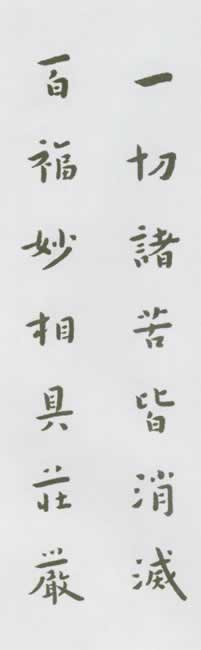 一切諸苦皆消滅
百福妙相具莊嚴